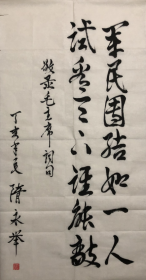 军民团结如一人
试看天下谁能敌
敬录毛主席词句
丁亥年冬
隋永举